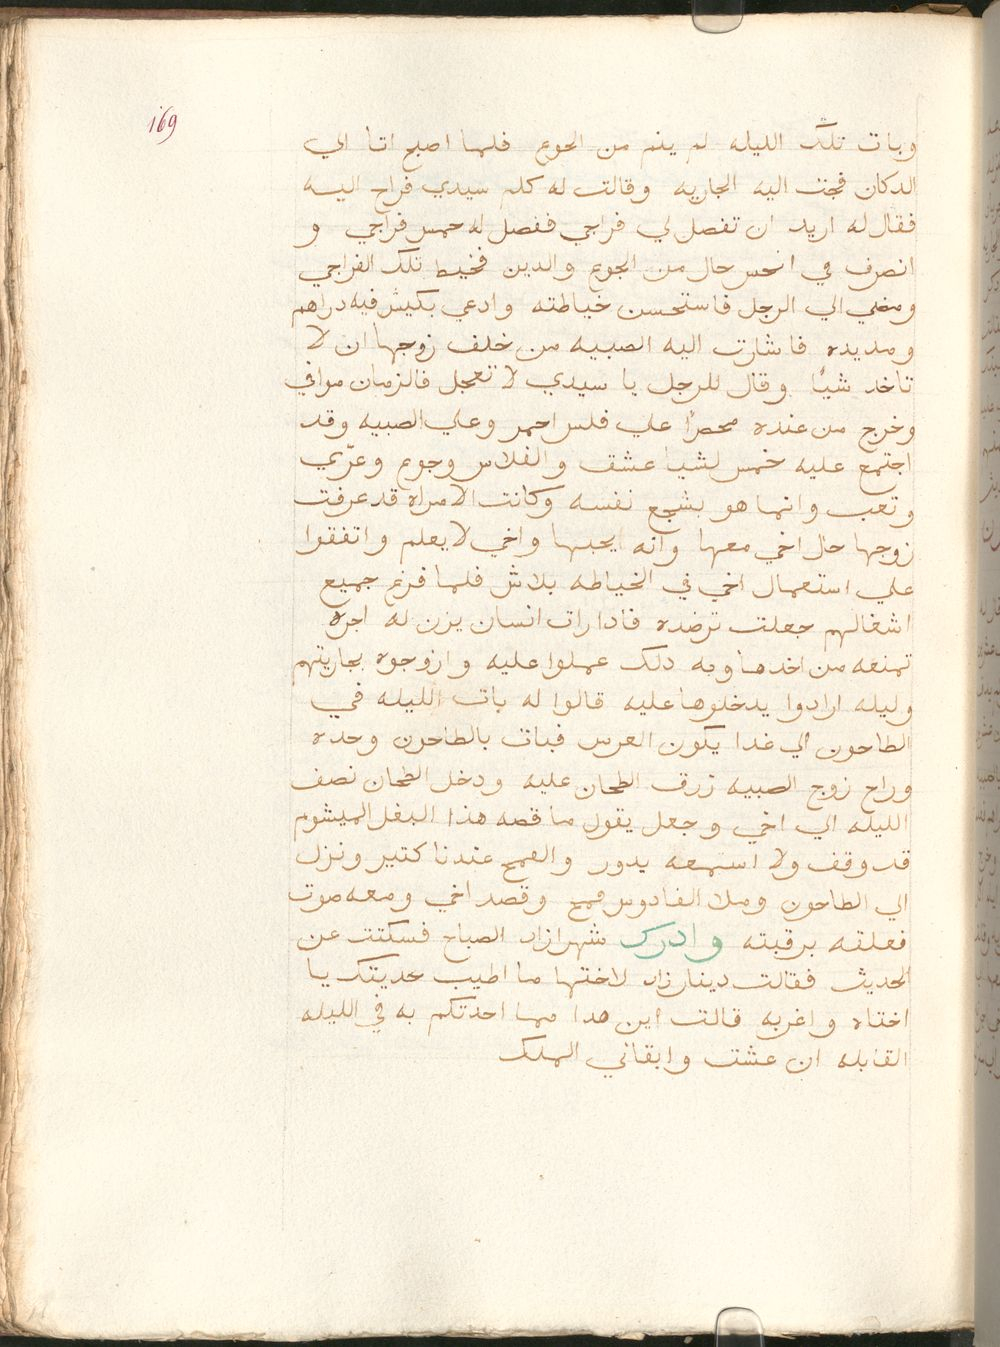 169
وبات تلك الليله لم ينم من الجوع فلما اصبح اتا الي
الدكان فجت اليه الجاريه وقالت له كلم سيدي فراح اليه
فقال له اريد ان تفصل لي فراجي ففصل له خمس فراجي و
انصرف في انحس حال من الجوع والدين فخيط تلك الفراجي
ومضي الي الرجل فاستحسن خياطته وادعي بكيش فيه دراهم
ومد يده فاشارت اليه الصبيه من خلف زوجها ان لا
تاخد شيًا وقال للرجل يا سيدي لا تعجل فالزمان موافي
وخرج من عنده محصرًا علي فلس احمر وعلي الصبيه وقد
اجتمع عليه خمس لشيا عشق والفلاس وجوع وعرّي
وتعب وانما هو يشجع نفسه وكانت الامراه قد عرفت
زوجها حال اخي معها وانه يحبها واخي لا يعلم واتفقوا
علي استعمال اخي في الخياطه بلاش فلما فرغ جميع
اشغالهم جعلت ترضده فادا رات انسان يزن له اجره
تمنعه من اخدها وبه دلك عملوا عليه وازوجوه بجاريتهم
وليله ارادوا يدخلوها عليه قالوا له بات الليله في
الطاحون الي غدا يكون العرس فبات بالطاحون وحده
وراح زوج الصبيه زرق الطحان عليه ودخل الطحان نصف
الليله الي اخي وجعل يقول ما قصه هذا البغل الميشوم
قد وقف ولا اسمعه يدور والقمح عندنا كتير ونزل
الي الطاحون وملا القادوس قمح وقصد اخي ومعه صوت
فعلقه برقبته وادرك شهرازاد الصباح فسكتت عن
الحديث فقالت دينارزاد لاختها ما اطيب حديتك يا
اختاه واغربه قالت اين هدا مما احدتكم به في الليله
القابله ان عشت وابقاني الملك